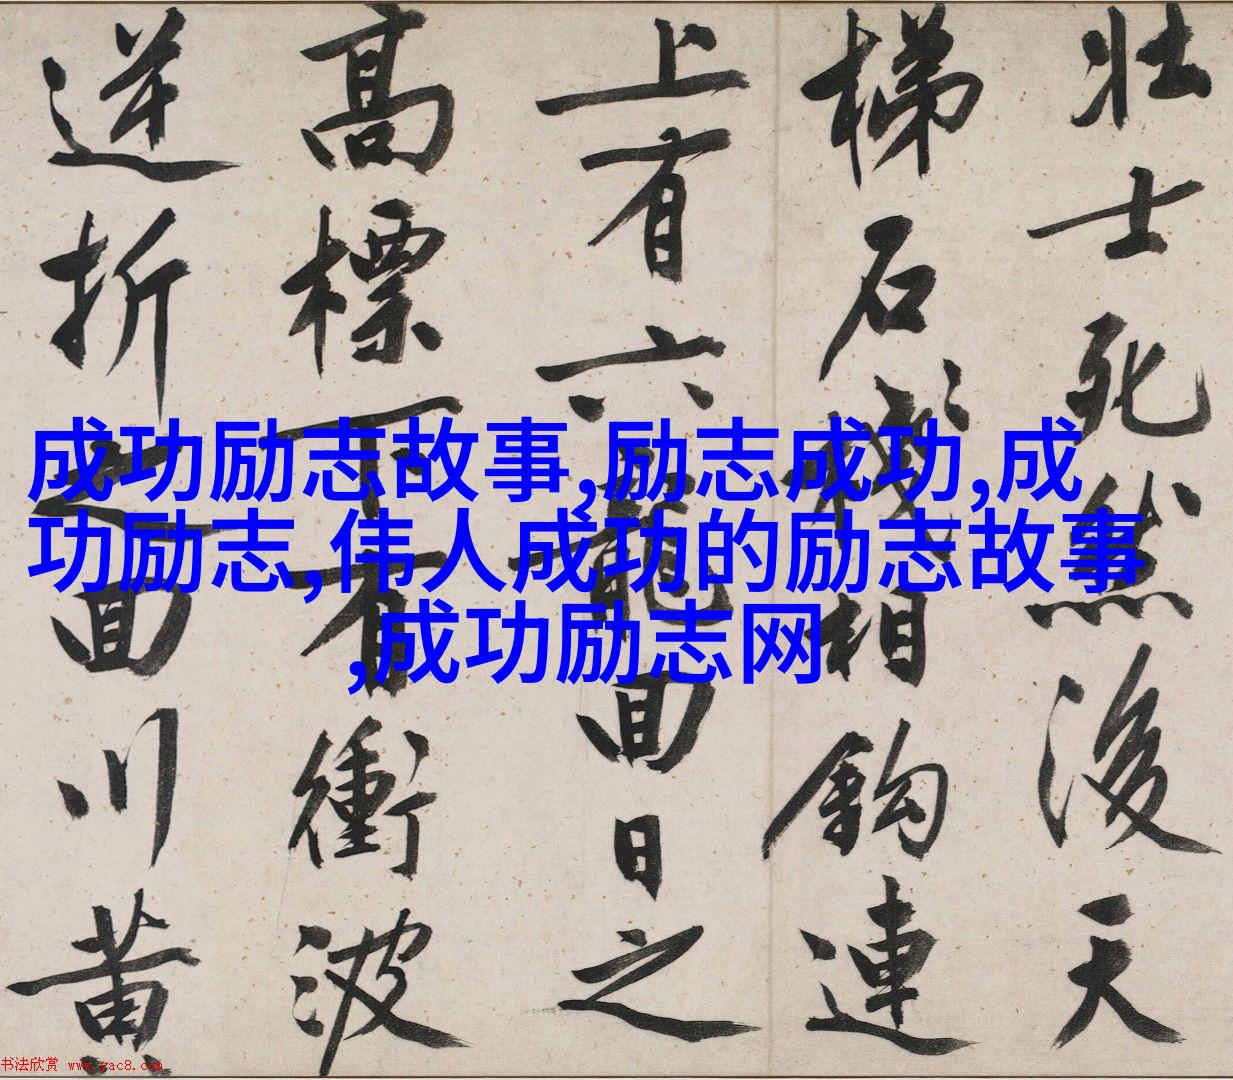 壯士死然後天
梯石棧相鈎連
上有六龍囬日之
高標下有衝波
逆折之囬川黄
成功励志故事,励志成功,成
功励志,伟人成功的励志故事
,成功励志网
书法欣赏 www.yac8.com